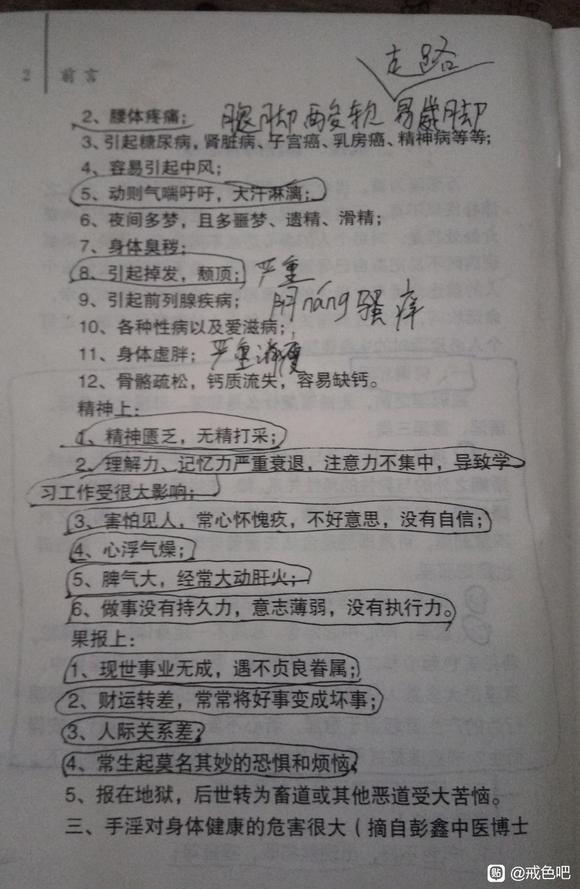 2 前言
走路
2、腰体疼痛； 腿脚酸软 易崴脚
3、引起糖尿病，肾脏病、子宫癌、乳房癌、精神病等等；
4、容易引起中风；
5、动则气喘吁吁，大汗淋漓；
6、夜间多梦，且多噩梦、遗精、滑精；
7、身体臭秽；
8、引起掉发，颓顶； 严重
9、引起前列腺疾病； 阴náng骚痒
10、各种性病以及爱滋病；
11、身体虚胖； 严重消瘦
12、骨骼疏松，钙质流失，容易缺钙。
精神上：
1、精神匮乏，无精打采；
2、理解力、记忆力严重衰退，注意力不集中，导致学
习工作受很大影响；
3、害怕见人，常心怀愧疚，不好意思，没有自信；
4、心浮气燥；
5、脾气大，经常大动肝火；
6、做事没有持久力，意志薄弱，没有执行力。
果报上：
1、现世事业无成，遇不贞良眷属；
2、财运转差，常常将好事变成坏事；
3、人际关系差；
4、常生起莫名其妙的恐惧和烦恼；
5、报在地狱，后世转为畜道或其他恶道受大苦恼。
三、手淫对身体健康的危害很大（摘自彭鑫中医博士
贴 @戒色吧